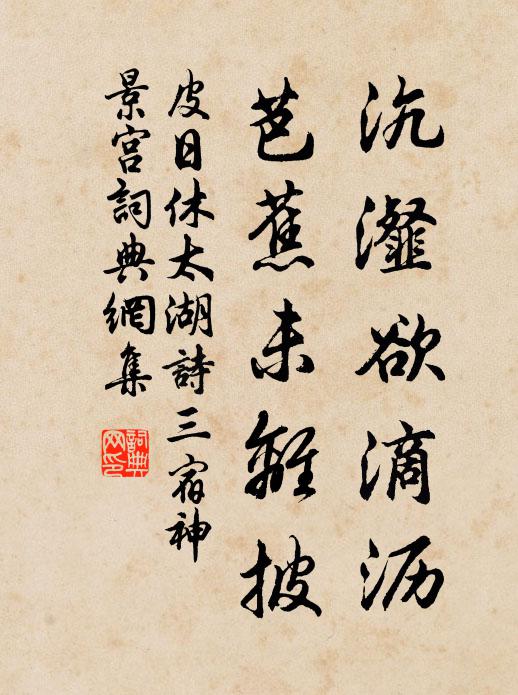 沆瀣欲滴沥
芭蕉未離披
皮日休太湖詩三宿神
景宫詞典網集
詞典
网印